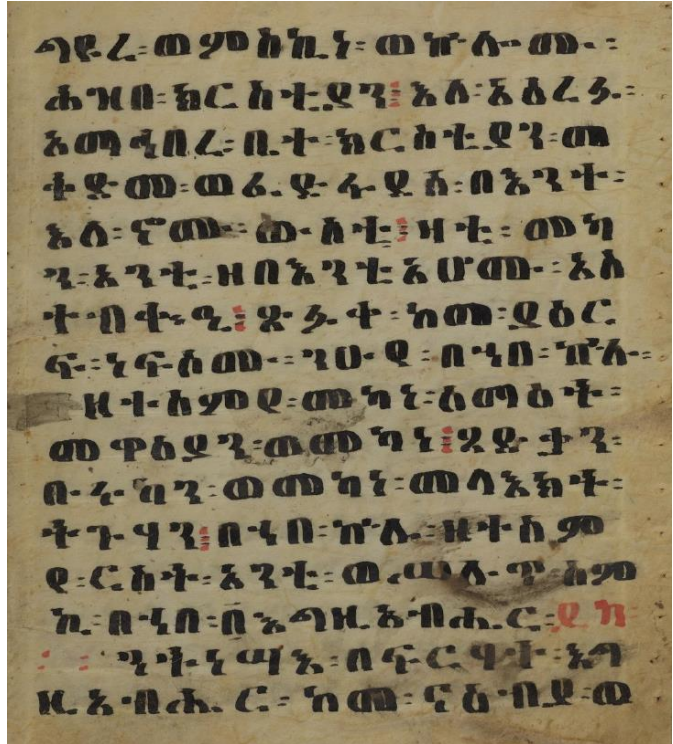 ጣዩረ፡ ወምስኪነ፡ ወኵሎሙ፡
ሕዝበ፡ ክርስቲያን፤ እለ፡ አዕረፉ፡
እማኅበረ፡ ቤተ፡ ክርስቲያን፡ መ
ቅድመ፡ ወፈድፋደሰ፡ በእንተ፡
እለ፡ ኖሙ፡ ውስቲ፤ ዛቲ፡ መካ
ን፡ እንቲ፡ ዘበእንቲአሆሙ፡ አስ
ተብቍዒ፤ ጸሎተ፡ ከመ፡ ያዕር
ፍ፡ ነፍሰሙ፡ ንሁየ፡ በኀበ፡ ኵሉ፡
ዘተሰምየ፡ መካነ፡ ሰማዕት፡
መዋዕያን፡ ወመካነ፤ ጻድቃን፡
ቡሩካን፡ ወመካነ፡ መላእክት፡
ትጉሃን፤ በኀበ፡ ኵሉ፡ ዘተሰም
የ፡ ርስት፡ እንቲ፡ ወ ስም
ኪ፡ በኀበ፡ በእግዚአብሔር፡ ይካ
ንትነሣእ፡ በፍርሃት፡ እግ
ዚአብሔር፡ ከመ፡ ናዕብያ፡ ወ